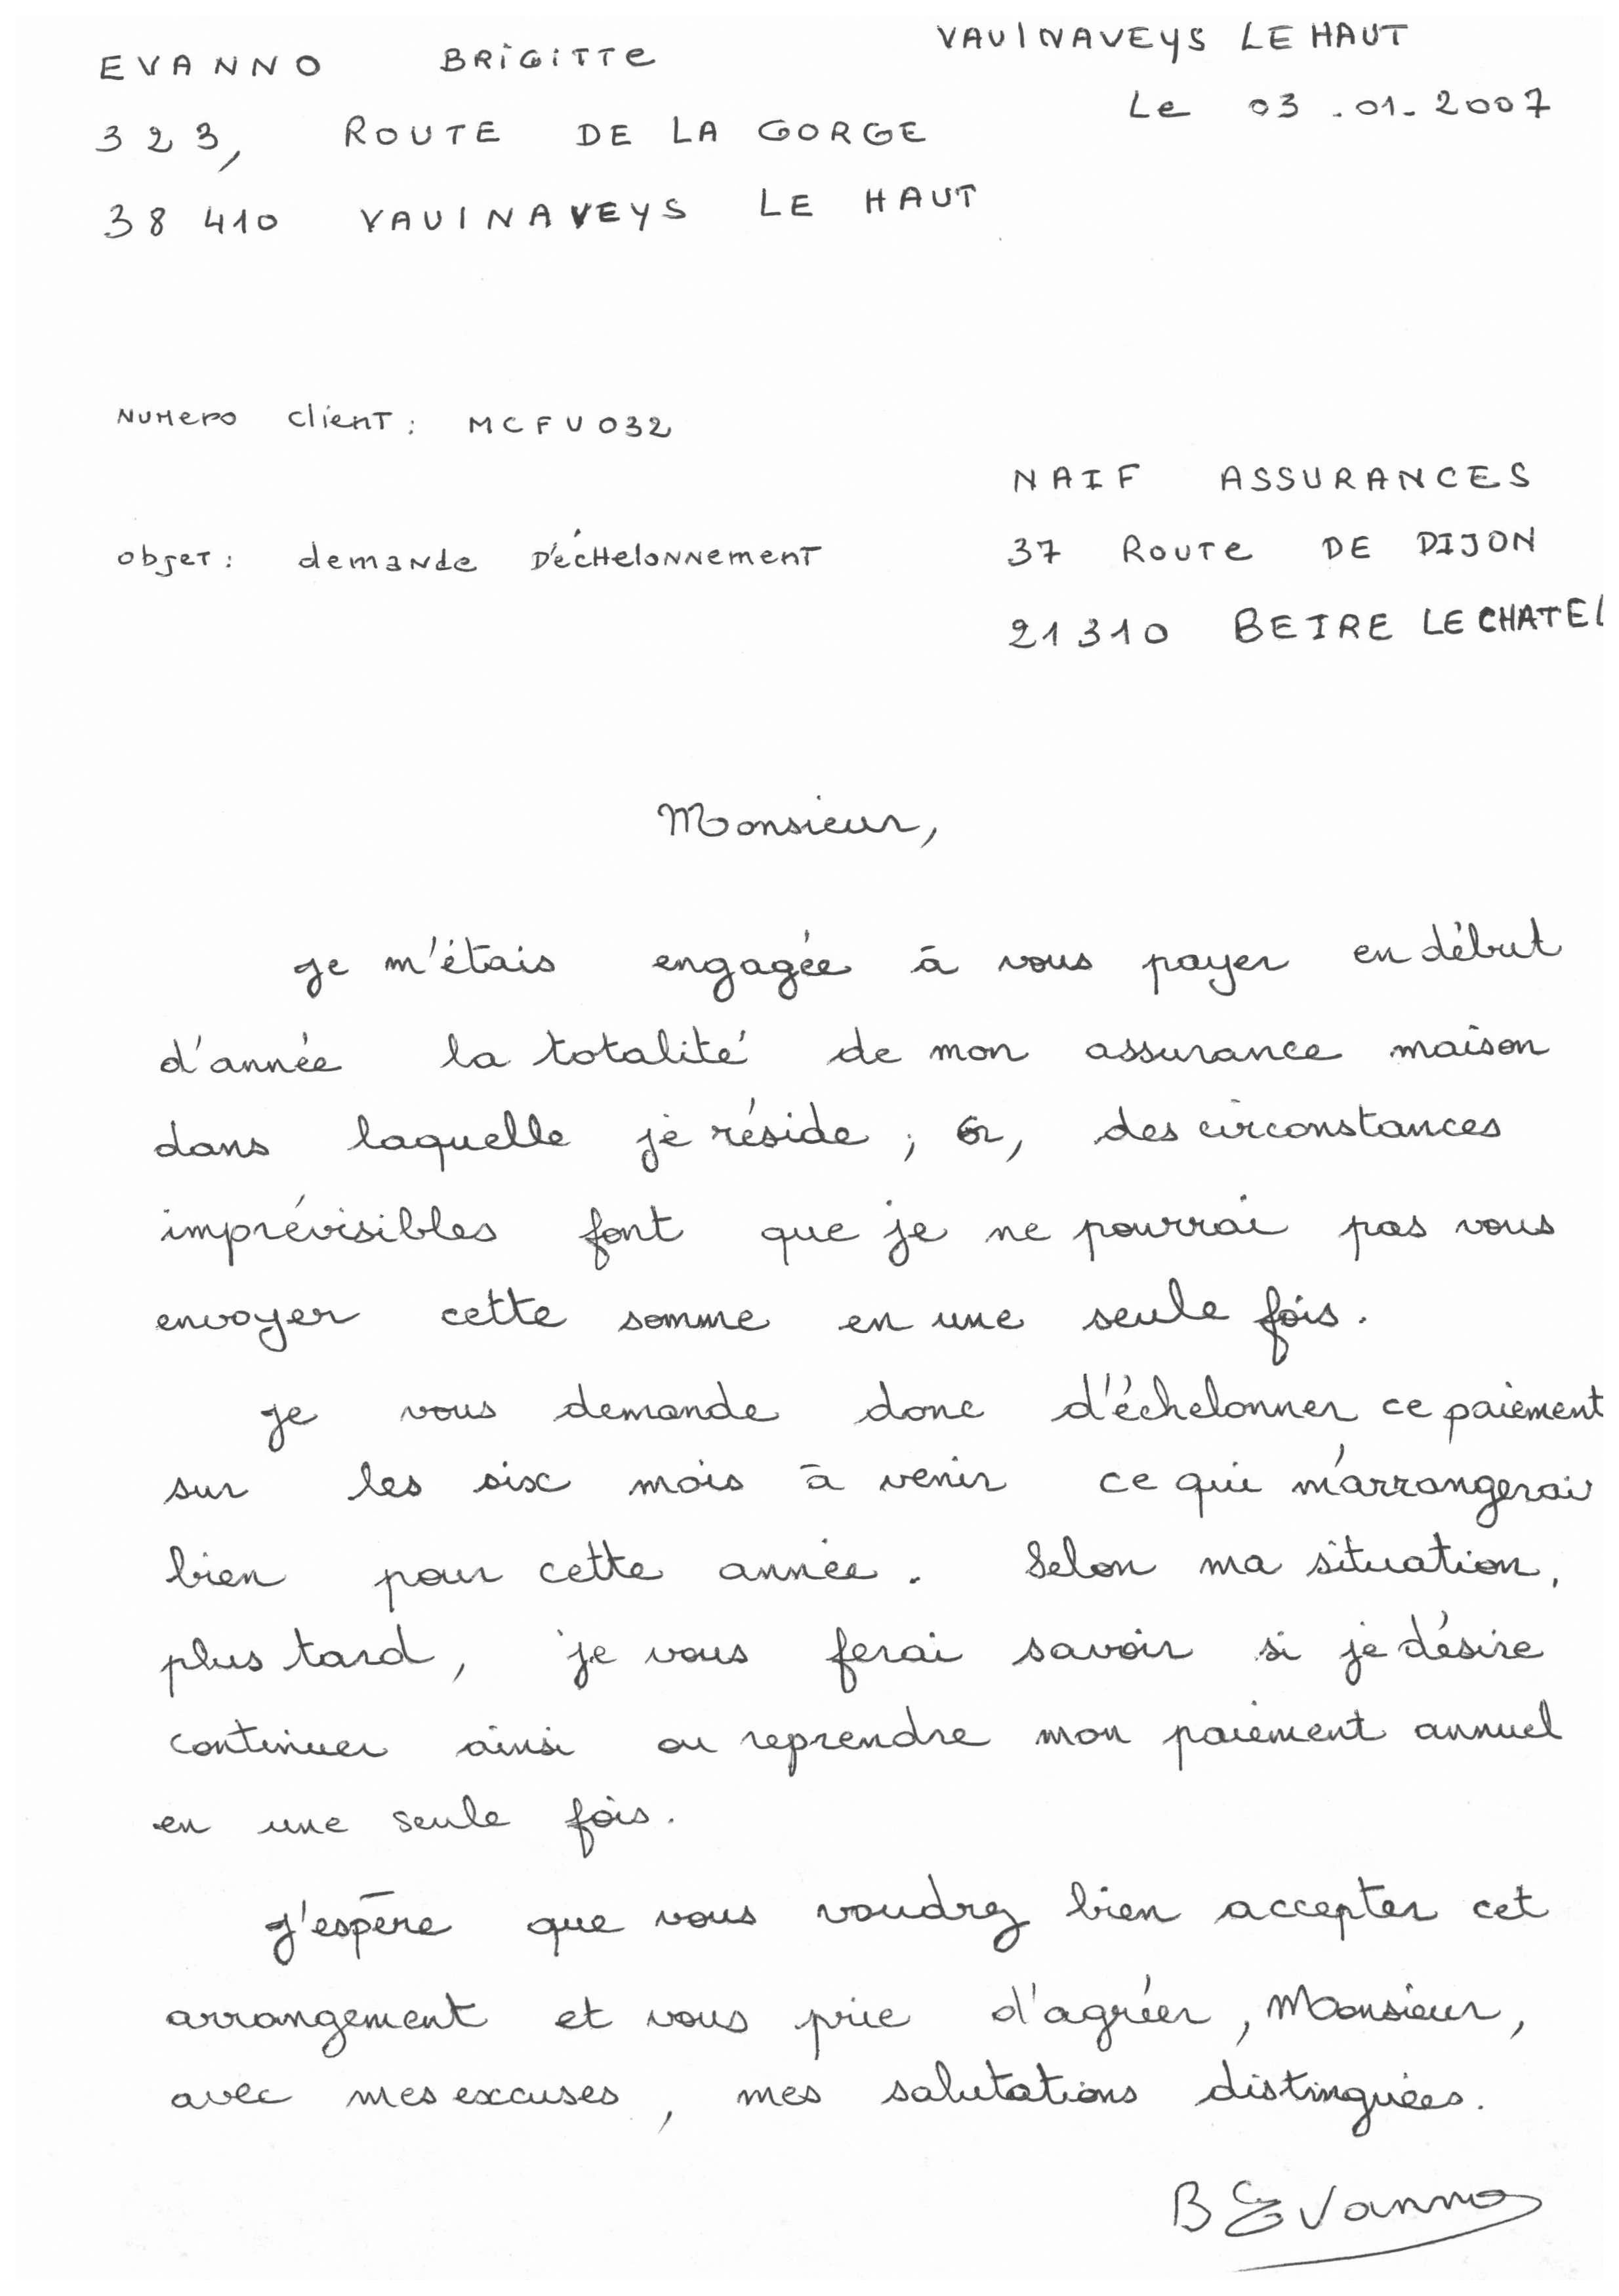 EVANNO BRIGITTE
VAUINAVEYS LE HAUT
323, ROUTE DE LA GORGE
Le 03.01.2007
38 410 VAUINAVEYS LE HAUT
NUMERO CLIENT : MCFU032
NAIF ASSURANCES
37 ROUTE DE DIJON
OBJET : demande D'écHeloNNement
21310 BEIRE LE CHATEL
Monsieur,
Je m'étais engagée à vous payer en début
d'année la totalité de mon assurance maison
dans laquelle je réside ; or, des circonstances
imprévisibles font que je ne pourrai pas vous
envoyer cette somme en une seule fois.
Je vous demande donc d'échelonner ce paiement
sur les six mois à venir ce qui m'arrangerai
bien pour cette année. Selon ma situation,
plus tard, je vous ferai savoir si je désire
continuer ainsi ou reprendre mon paiement annuel
en une seule fois.
J'espère que vous voudrez bien accepter cet
arrangement et vous prie d'agréer, Monsieur,
avec mes excuses, mes salutations distinguées.
B Evanno